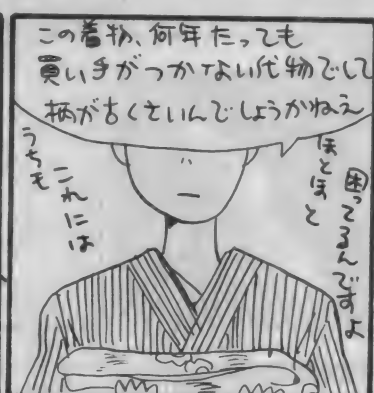 この着物、何年たっても
買い手がつかない代物でして
柄が古くさいんでしょうかねえ
うちも
これには
ほとほと
困ってるんですよ